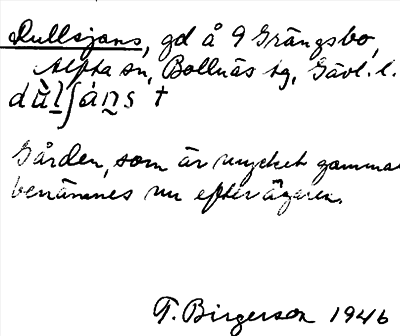 Dullsjans, gd å 9 Grängsbo,
Alfta sn, Bollnäs tg, Gävl. l.
dùlʃàns †
Gården, som är mycket gammal
benämnes nu efter ägaren.
T. Birgerson 1946